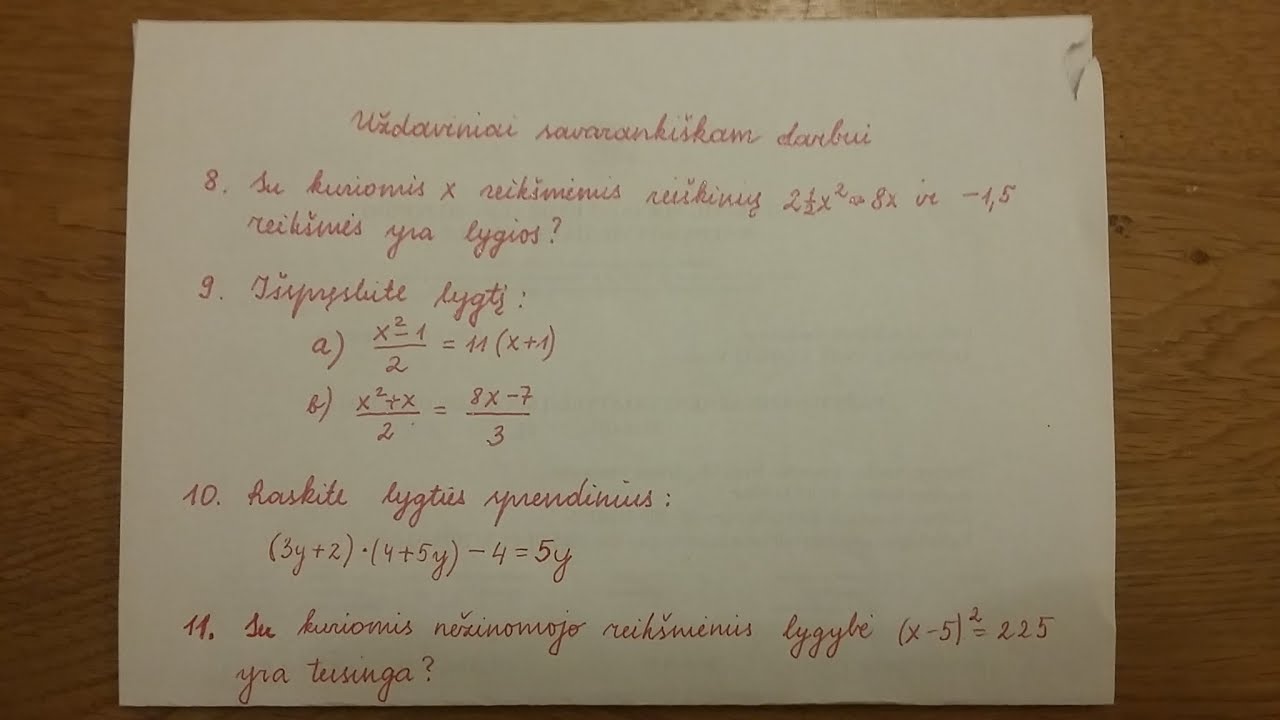 Uždaviniai savarankiškam darbui
8. Su kuriomis x reikšmėmis reiškinių 2½x² - 8x ir -1,5
reikšmės yra lygios?
9. Išspręskite lygtį:
a) (x² - 1)/2 = 11(x+1)
b) (x² + x)/2 = (8x - 7)/3
10. Raskite lygties sprendinius:
(3y+2)·(4+5y) - 4 = 5y
11. Su kuriomis nežinomojo reikšmėmis lygybė (x-5)² = 225
yra teisinga?